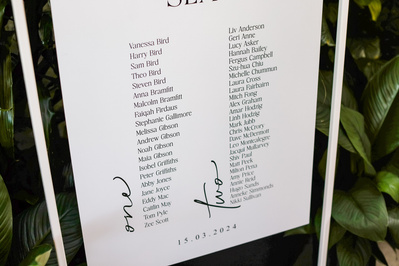 Vanessa Bird
Harry Bird
Sam Bird
Theo Bird
Steven Bird
Anna Bramlitt
Malcolm Bramlitt
Faiqah Firdaus
Stephanie Gallimore
Melissa Gibson
Andrew Gibson
Noah Gibson
Maia Gibson
Isobel Griffiths
Peter Griffiths
Abby Jones
Jane Joyce
Eddy Mac
Caitlin May
Tom Pyle
Zee Scott
one
Liv Anderson
Geri Anne
Lucy Asker
Hannah Bailey
Fergus Campbell
Szu-hua Chiu
Michelle Chummun
Laura Cross
Laura Fairbairn
Mitch Fong
Alex Graham
Amar Hodzig
Linh Hodzig
Mark Jubb
Chris McCrory
Dave McDermott
Leo Montealegre
Jacqui Mullarvey
Shiv Paul
Matt Peek
Milton Pena
Amy Price
Annie Reid
Hugo Sands
Anneke Simmonds
Nikki Sullivan
two
15.03.2024